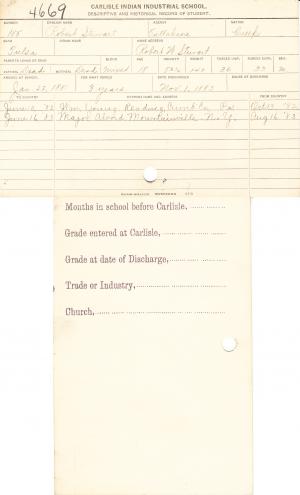 4669
CARLISLE INDIAN INDUSTRIAL SCHOOL.
DESCRIPTIVE AND HISTORICAL RECORD OF STUDENT.
NUMBER ENGLISH NAME AGENCY NATION
Robert Stewart Creek
BAND INDIAN NAME HOME ADDRESS
Tulsa Robert W Stewart
PARENTS LIVING OR DEAD BLOOD AGE HEIGHT WEIGHT FORCED INSP. FORCED EXPR. SEX
Dead Dead Mixed 18
ARRIVED AT SCHOOL FOR WHAT PERIOD DATE DISCHARGED CAUSE OF DISCHARGE
Jan 23, 1881 3 years Nov. 1, 1883
TO COUNTRY PATRONS NAME AND ADDRESS FROM COUNTRY
June 12, 82 Wm Young, Reading, Pa. Oct 13, 82
June 16 83 Major Mountainville, N.Y. Aug 16 83
Months in school before Carlisle,
Grade entered at Carlisle,
Grade at date of Discharge,
Trade or Industry,
Church,